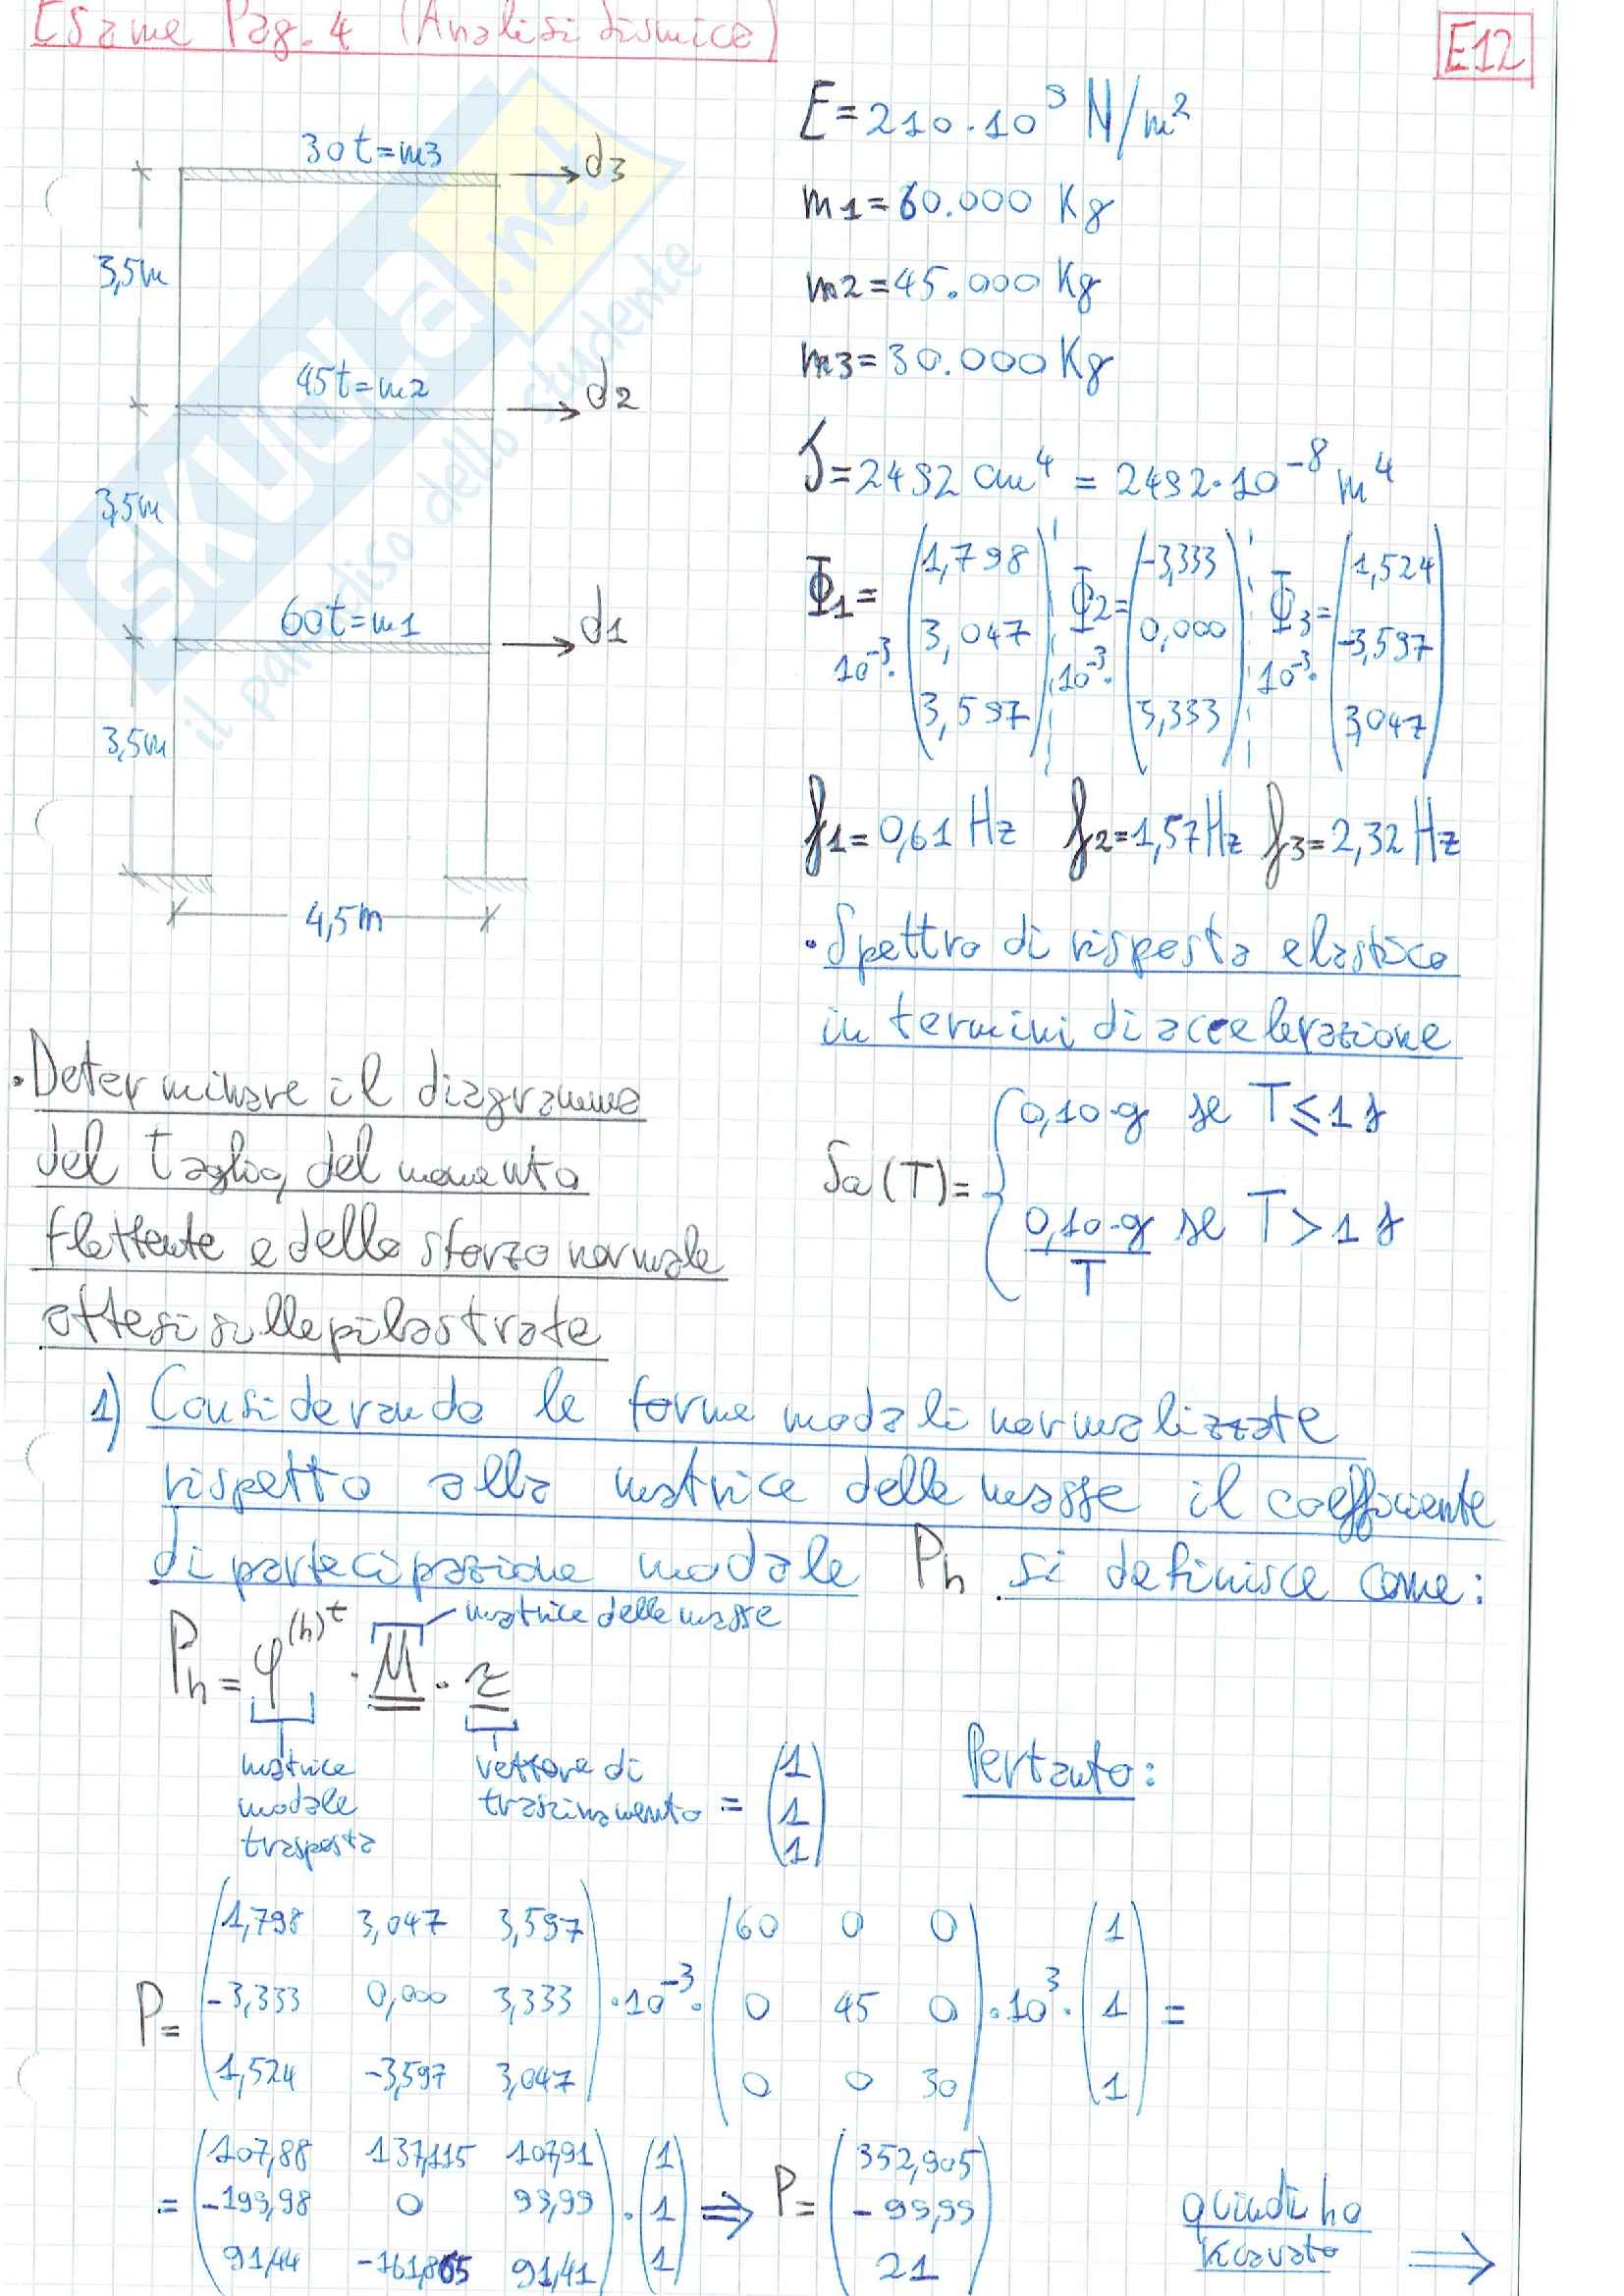 Esame Pag. 4 (Analisi sismica)
E12
30t=m3
d3
3,5m
45t=m2
d2
3,5m
60t=m1
d1
3,5m
4,5m
SKUOLA.net
il paradiso dello studente
E=210·10⁹ N/m²
m1=60.000 Kg
m2=45.000 Kg
m3=30.000 Kg
J=2492 cm⁴ = 2492·10⁻⁸ m⁴
Φ1= 10⁻³· (1,798 3,047 3,597) ; Φ2= 10⁻³· (-3,333 0,000 3,333) ; Φ3= 10⁻³· (1,524 -3,597 3,047)
f1=0,61 Hz f2=1,57Hz f3=2,32 Hz
·Spettro di risposta elastico
in termini di accelerazione
Sa(T)= { 0,10·g se T≤1 s
0,10·g/T se T>1 s
·Determinare il diagramma
del taglio, del momento
flettente e dello sforzo normale
attesi sulle pilastrate
1) Considerando le forme modali normalizzate
rispetto alla matrice delle masse il coefficiente
di partecipazione modale Ph si definisce come:
Ph = φ⁽ʰ⁾ᵗ · M · r
matrice delle masse
matrice
modale
trasposta
vettore di
trascinamento = (1 1 1)
Pertanto:
P= (1,798 3,047 3,597
-3,333 0,000 3,333
1,524 -3,597 3,047) ·10⁻³· (60 0 0
0 45 0
0 0 30) ·10³· (1 1 1) =
= (107,88 137,115 107,91
-199,98 0 99,99
91,44 -161,865 91,41) · (1 1 1) ⇒ P= (352,905 -99,99 21)
quindi ho
ricavato ⇒